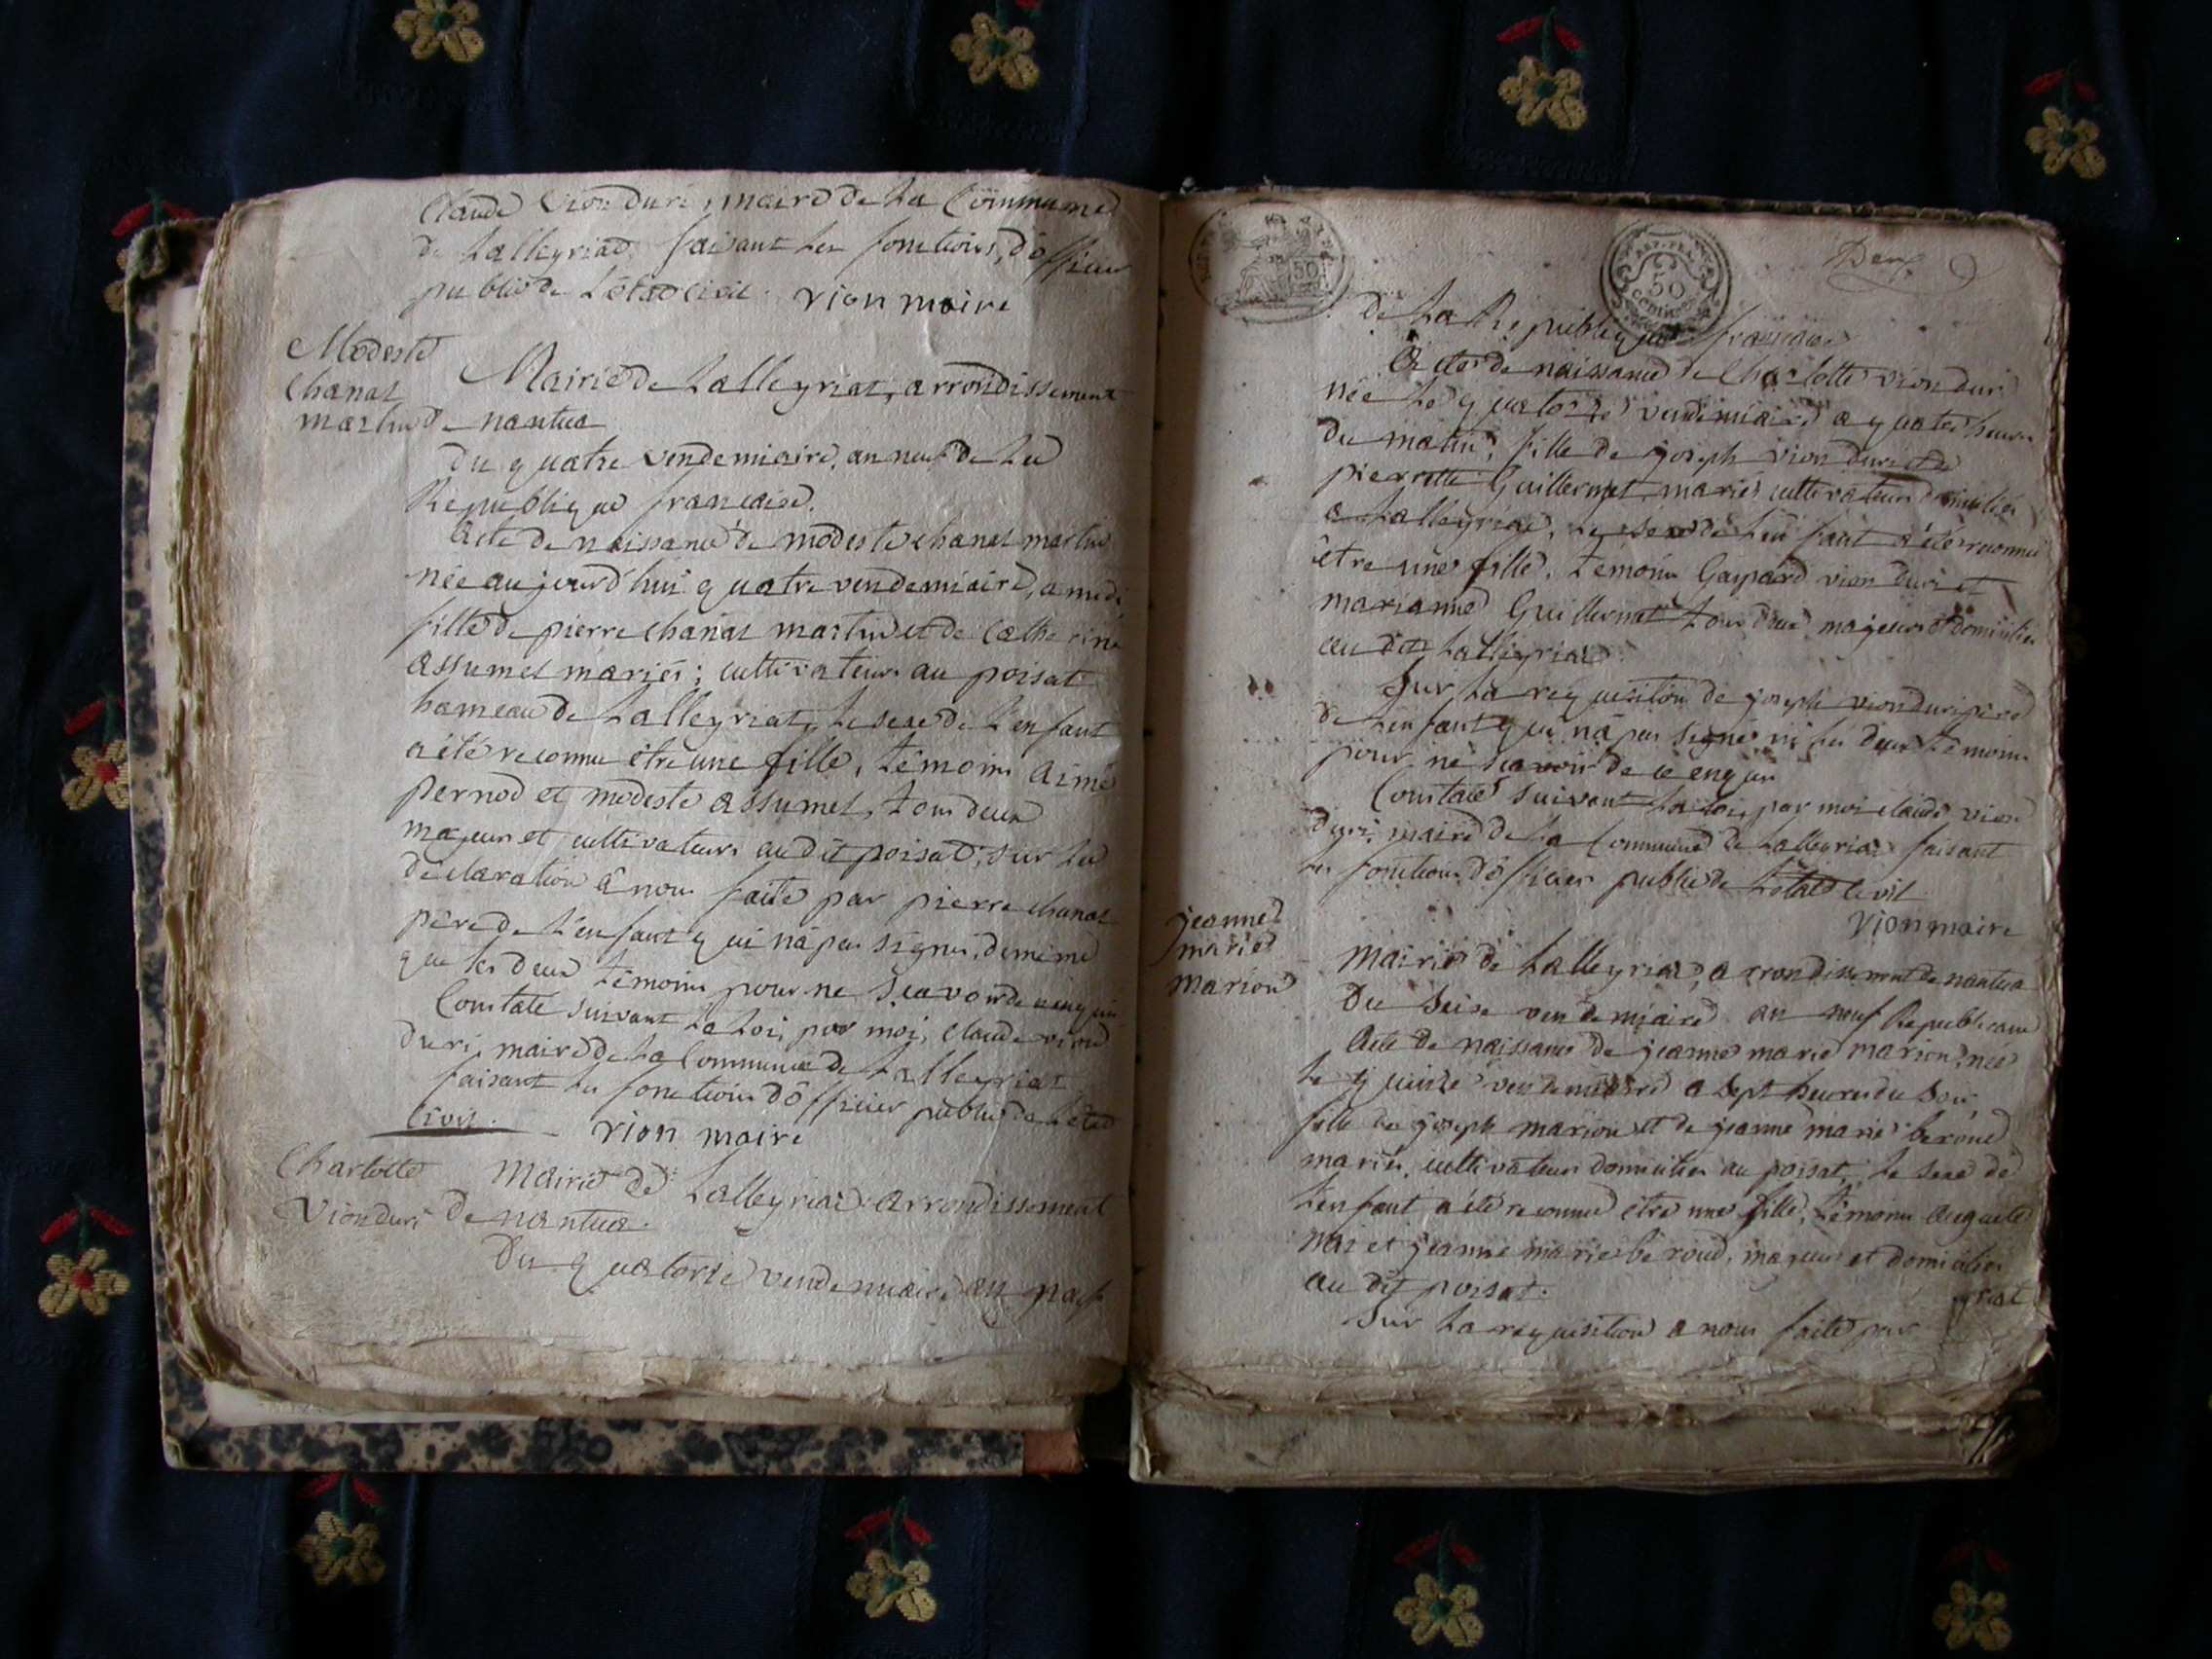 Claude Vion duri, maire de la Commune
de Lalleyriat faisant les fonctions, d'officier
public de L'état civil. vion maire
Modeste
Chanal
martin
Mairie de Lalleyriat, arrondissement
de nantua
du quatre vendemiaire, an neuf de la
Republique francaise.
Acte de naissance de modeste chanal martin
née aujourd'hui quatre vendemiaire, a midi
fille de pierre chanal martin et de Catherine
assumel mariés; cultivateurs au poisat
hameau de Lalleyriat, le sexe de L'enfant
a été reconnu être une fille, témoins Aimé
pernod et modeste assumel, tous deux
majeurs et cultivateurs au dit poisat, sur la
déclaration à nous faite par pierre chanal
pere de L'enfant qui n'a pas signé, de même
que les deux témoins pour ne scavoir de ce enquis
Constaté suivant La Loi, par moi, Claude vion
duri, maire de La Commune de Lalleyriat
faisant les fonctions d'officier public de L'état
Civil. vion maire
Charlotte
Vionduri
Mairie de Lalleyriat arrondissement
de nantua.
Du quatorze vendemiaire an neuf
50
REP. FRA.
50
centimes
Deux
de La Republique francaise
Acte de naissance de Charlotte vion duri
née le quatorze vendemiaire a quatre heures
du matin, fille de joseph vion duri et de
pierrette Guillermet, mariés cultivateurs domiciliés
a Lalleyriat, le sexe de L'enfant a été reconnu
être une fille, témoins Gaspard vion duri et
marianne Guillermet tous deux majeurs et domiciliés
au dit Lalleyriat.
Sur La requisition de joseph vion duri pere
de L'enfant qui n'a pas signé ni les deux témoins
pour ne scavoir de ce enquis
Constaté suivant La Loi, par moi claude vion
duri, maire de La Commune de Lalleyriat faisant
les fonctions d'officier public de L'état Civil
vion maire
jeanne
marie
marion
Mairie de Lalleyriat, arrondissement de nantua
Du seise vendemiaire an neuf Republicain
Acte de naissance de jeanne marie marion, née
Le quinze vendemiaire a sept heures du soir
fille de joseph marion et de jeanne marie beroud
mariés, cultivateurs domiciliés au poisat, Le sexe de
L'enfant a été reconnu etre une fille, témoins
et jeanne marie béroud, majeurs et domiciliés
au dit poisat.
Sur La requisition a nous faite par